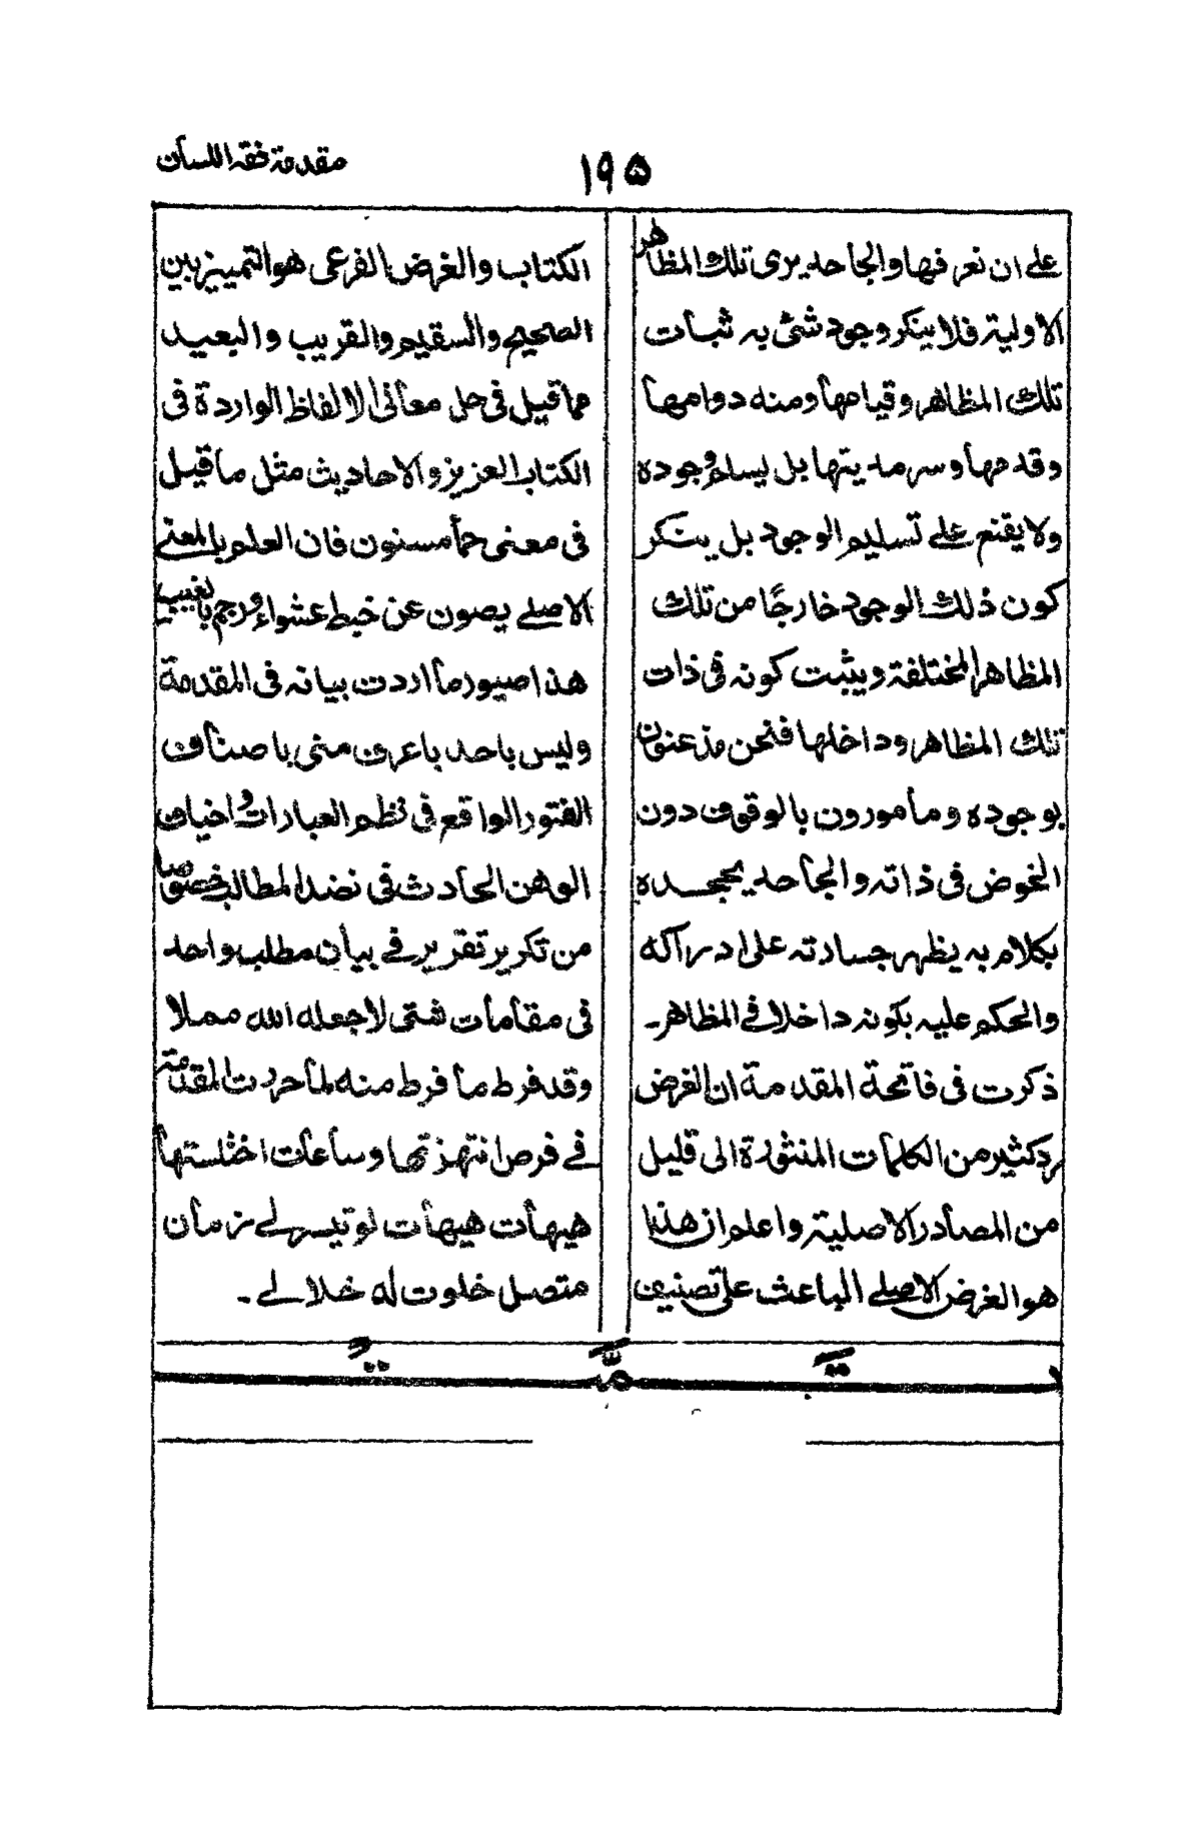 مقدمة فقه اللسان
۱۹۵
على ان نعرفها والجاحد يرى تلك المظاهر
الاولية فلا ينكر وجود شئ به ثبات
تلك المظاهر وقيامها ومنه دوامها
وقدمها وسرمديتها بل يسلم وجوده
ولا يقنع على تسليم الوجود بل ينكر
كون ذلك الوجود خارجًا من تلك
المظاهر المختلفة ويثبت كونه فى ذات
تلك المظاهر وداخلها فنحن مذعنون
بوجوده ومأمورون بالوقوف دون
الخوض فى ذاته والجاحد يجحده
بكلام به يظهر جسادته على ادراكه
والحكم عليه بكونه داخلا في المظاهر۔
ذكرت فى فاتحة المقدمة ان الغرض
رد كثير من الكلمات المنثورة الى قليل
من المصادر الاصلية واعلم ان هذا
هو الغرض الاصلے الباعث على تصنيف
الكتاب والغرض الفرعى هو التمييز بين
الصحيح والسقيم والقريب والبعيد
مما قيل فى حل معانى الالفاظ الواردة فى
الكتاب العزيز والاحاديث مثل ما قيل
فى معنى حمأ مسنون فان العلم بالمعنے
الاصلے يصون عن خبط عشواء ورجم بالغيب
هذا صيور ما اردت بيانه فى المقدمة
وليس باحد باعرف منى باصناف
الفتور الواقع فى نظم العبارات واخياف
الوهن الحادث فى نضد المطالب خصوصا
من تكرير تقرير فے بيان مطلب واحد
فى مقامات شتى لاجعله الله مملا
وقد فرط ما فرط منه لما حررت المقدمة
فے فرص انتهزتها وساعات اختلستها
هيهات هيهات لو تيسر لے زمان
متصل خلوت له خلالے۔
تمت